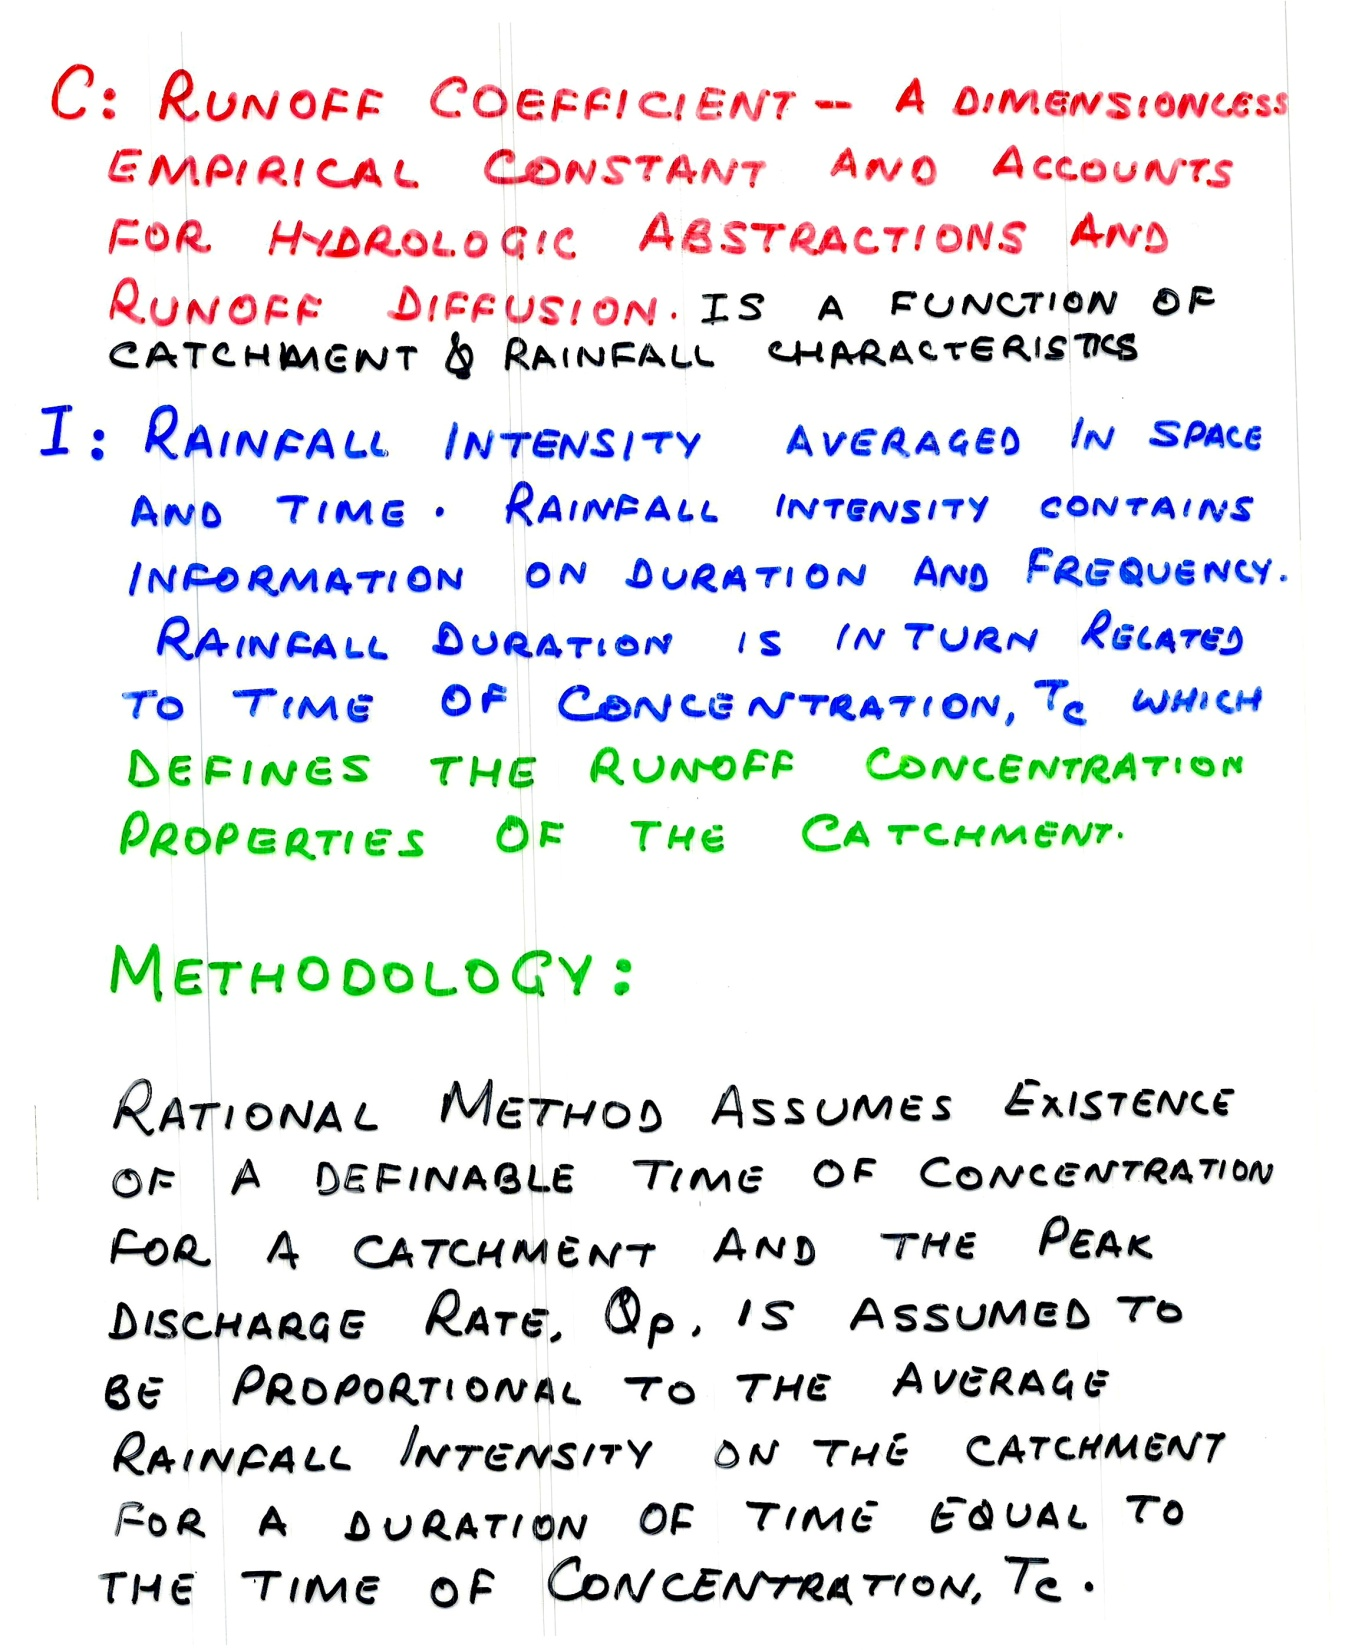 C: RUNOFF COEFFICIENT -- A DIMENSIONLESS
EMPIRICAL CONSTANT AND ACCOUNTS
FOR HYDROLOGIC ABSTRACTIONS AND
RUNOFF DIFFUSION. IS A FUNCTION OF
CATCHMENT & RAINFALL CHARACTERISTICS
I: RAINFALL INTENSITY AVERAGED IN SPACE
AND TIME. RAINFALL INTENSITY CONTAINS
INFORMATION ON DURATION AND FREQUENCY.
RAINFALL DURATION IS IN TURN RELATED
TO TIME OF CONCENTRATION, Tc WHICH
DEFINES THE RUNOFF CONCENTRATION
PROPERTIES OF THE CATCHMENT.
METHODOLOGY:
RATIONAL METHOD ASSUMES EXISTENCE
OF A DEFINABLE TIME OF CONCENTRATION
FOR A CATCHMENT AND THE PEAK
DISCHARGE RATE, Qp, IS ASSUMED TO
BE PROPORTIONAL TO THE AVERAGE
RAINFALL INTENSITY ON THE CATCHMENT
FOR A DURATION OF TIME EQUAL TO
THE TIME OF CONCENTRATION, Tc.